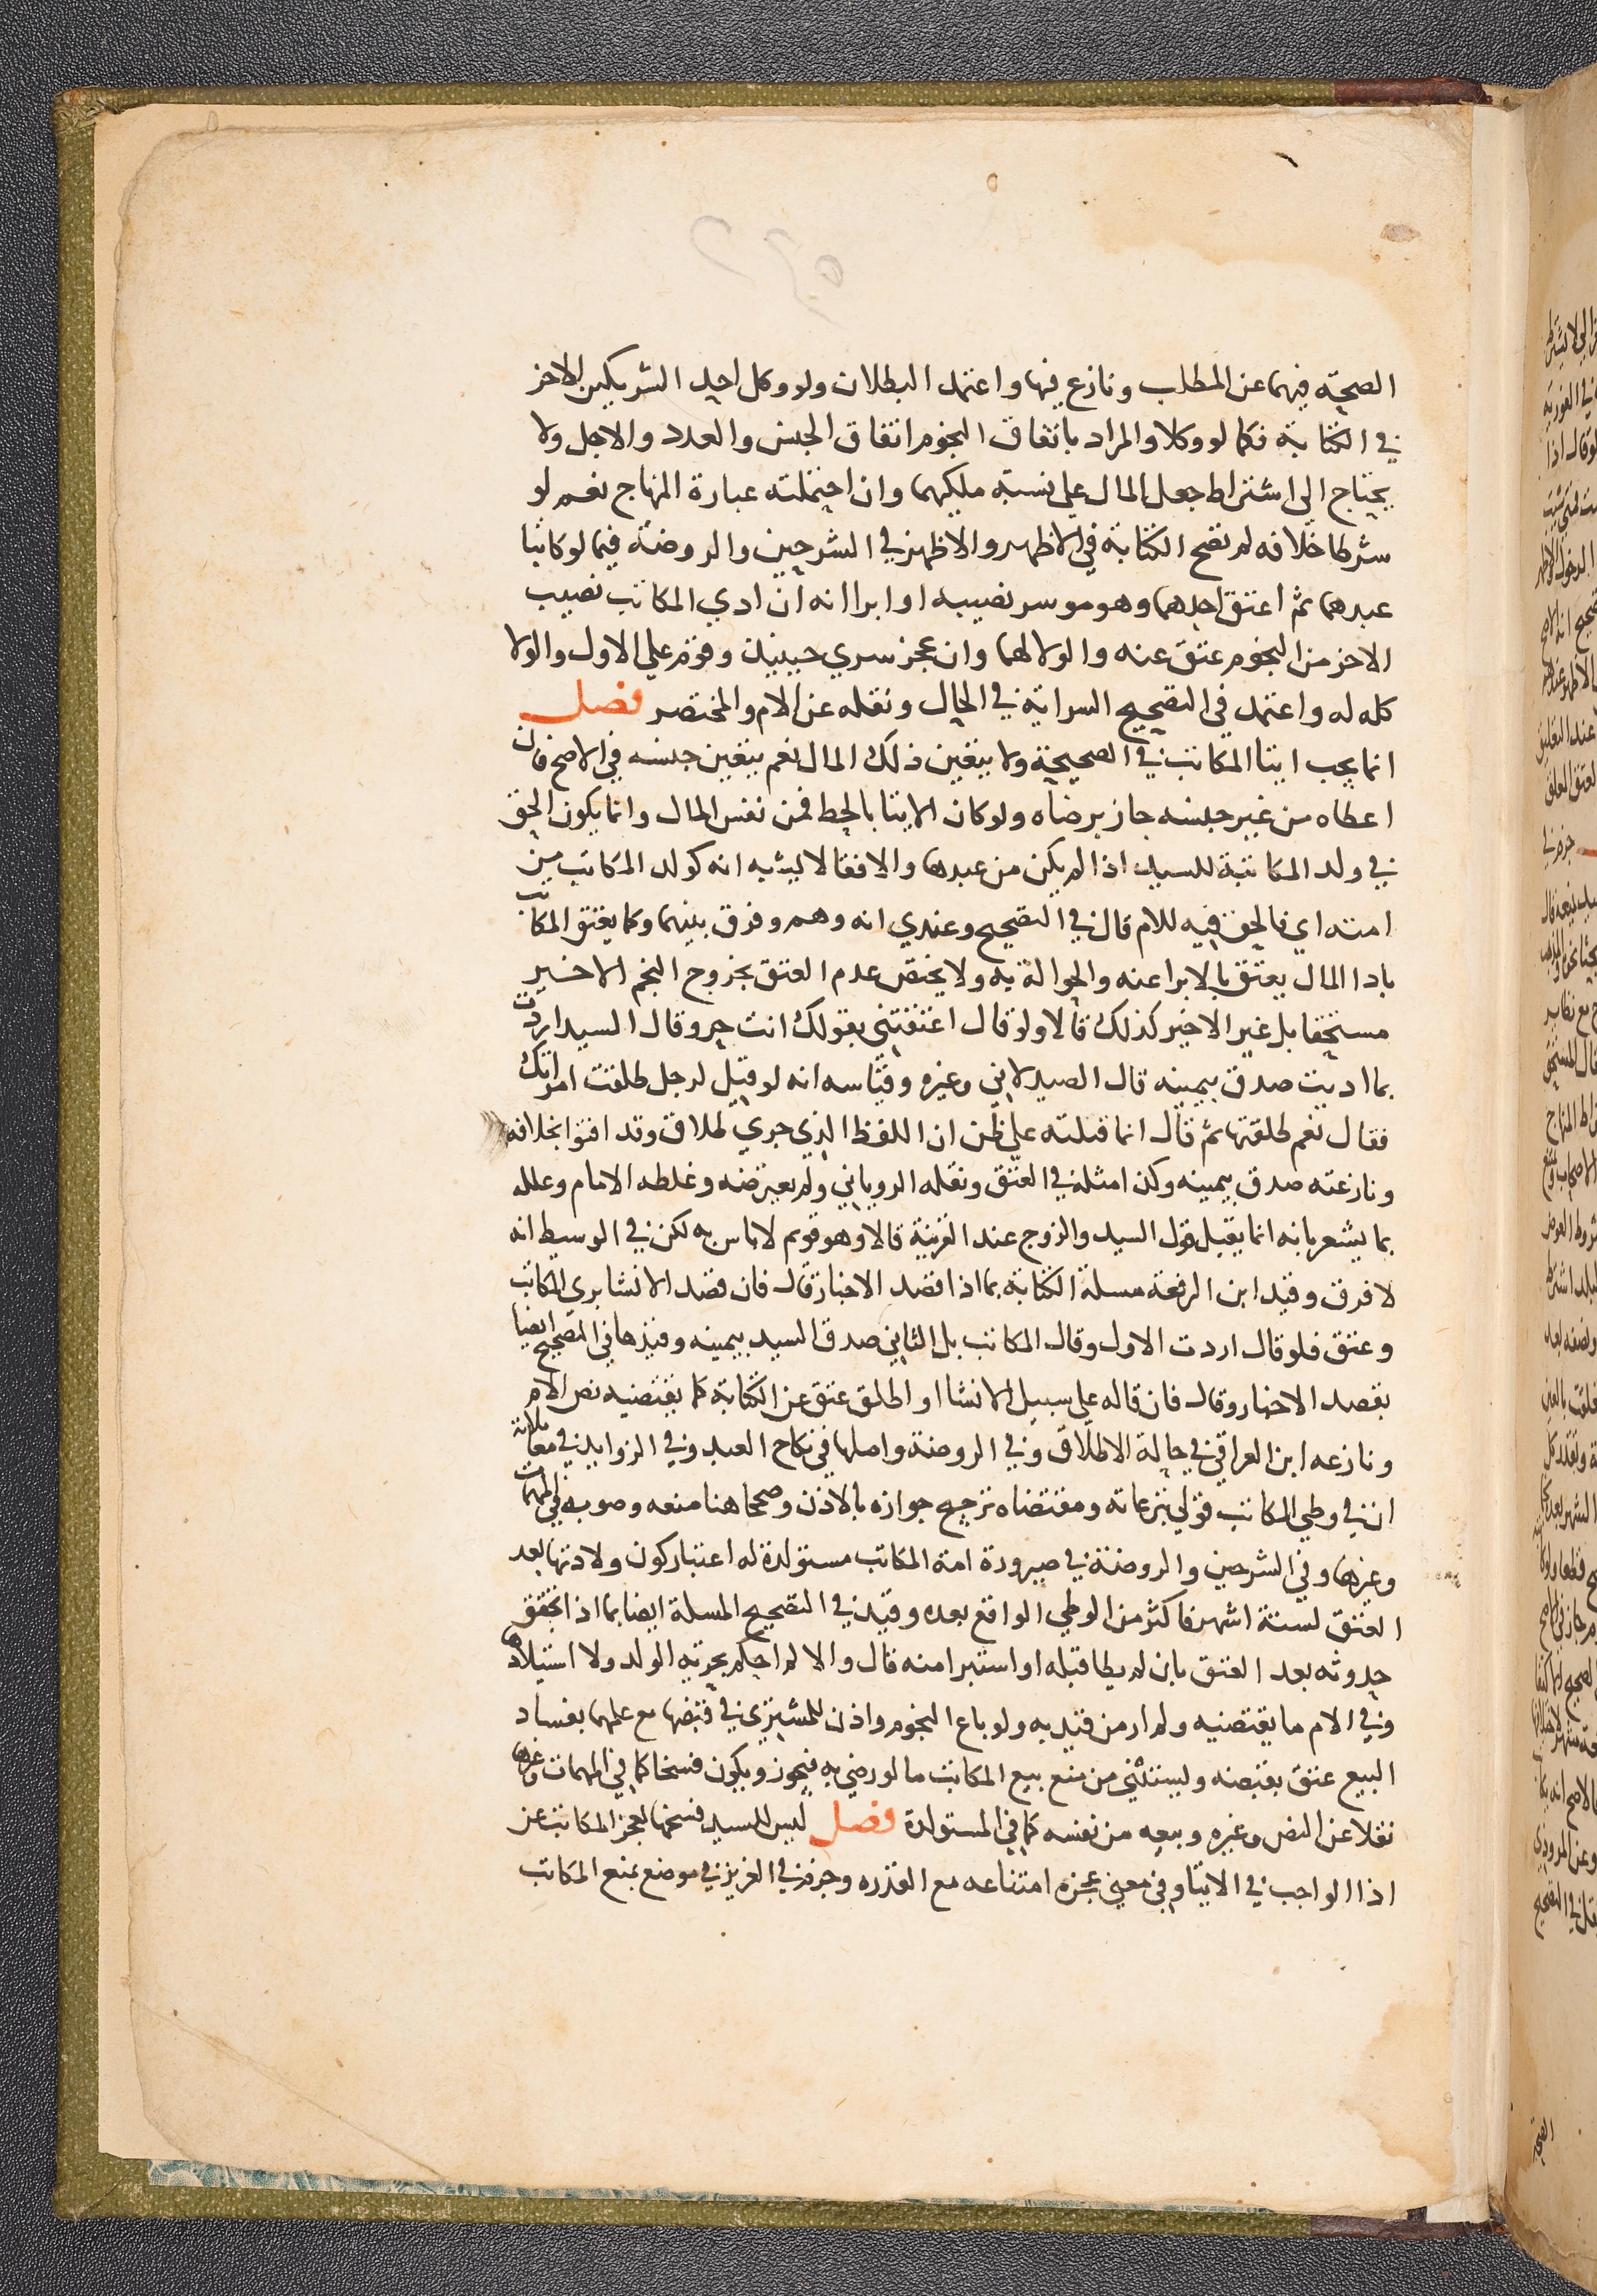 الصحة فيهما عن المطلب ونازع فيها واعتمد البطلان ولو وكل احد الشريكين الاخر
في الكتابة فكما لو وكلا والمراد باتفاق النجوم اتفاق الجنس والعدد والاجل ولا
يحتاج الى اشتراط جعل المال على نسبة ملكيهما وان احتملته عبارة المنهاج نعم لو
شرطا خلافه لم تصح الكتابة في الاظهر والاظهر في الشرحين والروضة فيما لو كاتبا
عبدهما ثم اعتق احدهما وهو موسر نصيبه او ابراه انه ان ادي المكاتب نصيب
الاخر من النجوم عتق عنه والولا لهما وان عجز سري حينيذ وقوم على الاول والولا
كله له واعتمد في التصحيح السراية في الحال ونقله عن الام والمختصر فصل
انما يجب ايتا المكاتب في الصحيحة ولا يتعين ذلك المال نعم يتعين جنسه في الاصح فان
اعطاه من غير جنسه جاز برضاه ولو كان الايتا بالحط فمن نفس المال وانما يكون الحق
في ولد المكاتبة للسيد اذا لم يكن من عبدها والا فقالا يشبه انه كولد المكاتب من
امته اي فالحق فيه للام قال في التصحيح وعندي انه وهم وفرق بينهما وكما يعتق المكاتب
بادا المال يعتق بالابرا عنه والحوالة به ولا يختص عدم العتق بخروج النجم الاخير
مستحقا بل غير الاخير كذلك قالا ولو قال اعتقتني بقولك انت حر وقال السيد اردت
بما اديت صدق بيمينه قال الصيدلاني وغيره وقياسه انه لو قيل لرجل طلقت امراتك
فقال نعم طلقتها ثم قال انما قبلته على ظن ان اللفظ الذي جري طلاق وقد افتوا بخلافه
ونازعته صدق بيمينه وكذا مثله في العتق ونقله الروياني ولم يعترضه وغلطه الامام وعلله
بما يشعر بانه انما يقبل قول السيد والزوج عند القرينة قالا وهو قويم لا باس به لكن في الوسيط انه
لا فرق وقيد ابن الرفعة مسلة الكتابة بما اذا قصد الاخبار قال فان قصد الانشا بري المكاتب
وعتق فلو قال اردت الاول وقال المكاتب بل الثاني صدق السيد بيمينه وقيدها في التصحيح ايضا
بقصد الاخبار وقال فان قاله على سبيل الانشا او اطلق عتق عن الكتابة كما يقتضيه نص الام
ونازعه ابن العراقي في حالة الاطلاق وفي الروضة واصلها في نكاح العبد وفي الزوايد في معاملاته
ان في وطي المكاتب قولي تبرعاته ومقتضاه ترجيح جوازه بالاذن وصححا هنا منعه وصوبه في المهمات
وغيرها وفي الشرحين والروضة في صيرورة امة المكاتب مستولدة له اعتبار كون ولادتها بعد
العتق لستة اشهر فاكثر من الوطي الواقع بعده وقيد في التصحيح المسلة ايضا بما اذا تحقق
حدوثه بعد العتق بان لم يطا قبله او استبرا منه قال والا لم احكم بحرية الولد ولا استيلادها
وفي الام ما يقتضيه ولم ار من قيد به ولو باع النجوم واذن للمشتري في قبضها مع علمهما بفساد
البيع عتق بقبضه ويستثني من منع بيع المكاتب ما لو رضي به فيجوز ويكون فسخا كما في المهمات وغيرها
نقلا عن النص وغيره وبيعه من نفسه كما في المستولدة فصل ليس للسيد فسخها لعجز المكاتب عن
اذا الواجب في الايتا وفي معني عجزه امتناعه مع القدره وجزم في العزيز في موضع بمنع المكاتب